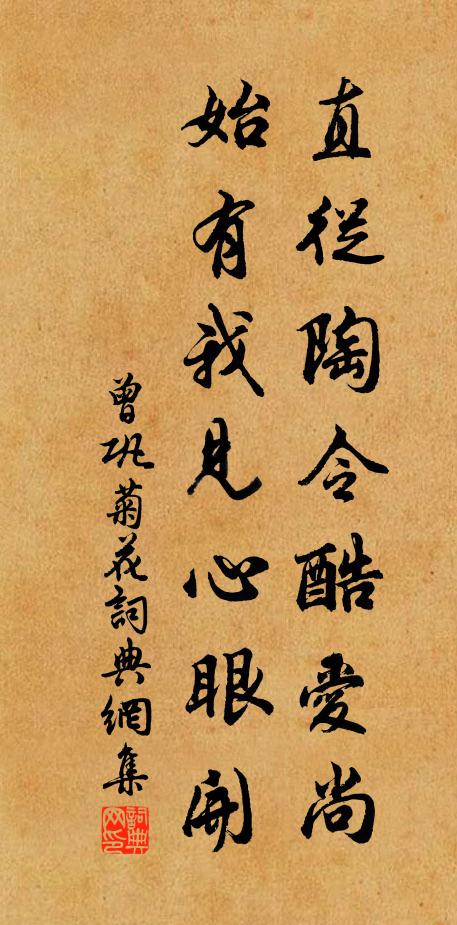 直從陶令酷愛尚
始有我見心眼開
曾巩菊花詞典網集
詞典網印